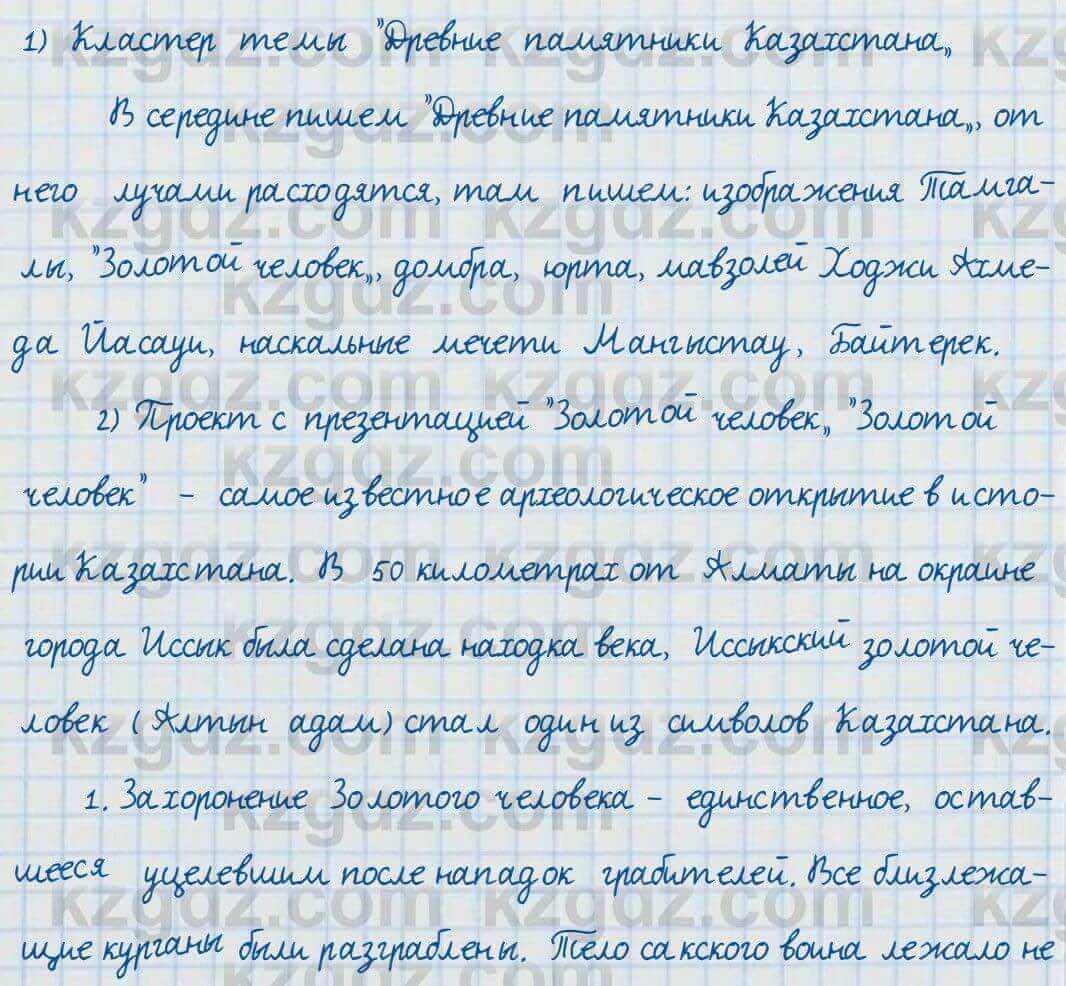 1) Кластер темы "Древние памятники Казахстана„
В середине пишем "Древние памятники Казахстана„, от
него лучами расходятся, там пишем: изображения Тамга-
лы, "Золотой человек„, домбра, юрта, мавзолей Ходжи Ахме-
да Йасауи, наскальные мечети Мангыстау, Байтерек.
2) Проект с презентацией "Золотой человек„ "Золотой
человек" - самое известное археологическое открытие в исто-
рии Казахстана. В 50 километрах от Алматы на окраине
города Иссык была сделана находка века, Иссыкский золотой че-
ловек (Алтын адам) стал один из символов Казахстана.
1. Захоронение Золотого человека - единственное, остав-
шееся уцелевшим после нападок грабителей. Все близлежа-
щие курганы были разграблены. Тело сакского воина лежало не